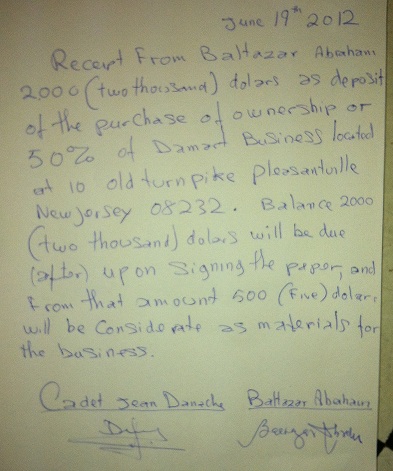 June 19th 2012
Receipt From Baltazar Abraham
2000 (two thousand) dolars as deposit
of the purchase of ownership or
50% of Damart Business located
at 10 old turnpike pleasantville
New Jersey 08232. Balance 2000
(two thousand) dolars will be due
(after) upon signing the paper, and
from that amount 500 (Five) dolars
will be Considerate as materials for
the business.
Cadet Jean Danache Baltazar Abraham